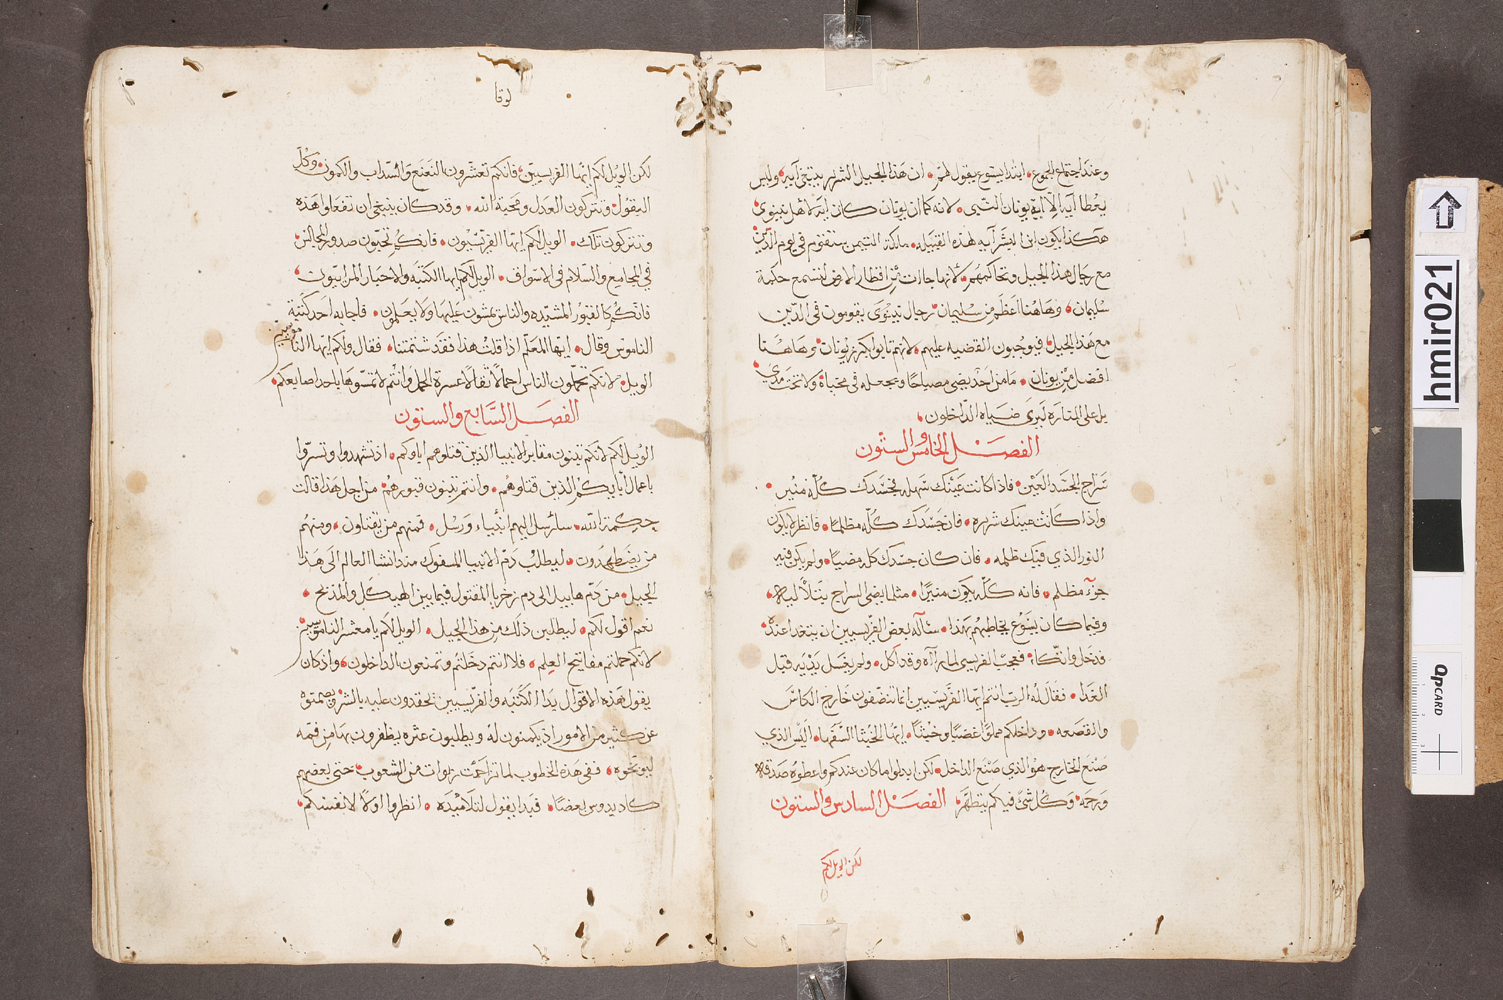 وعند اجتماع الجموع ابتدا يسوع يقول لهم ان هذا الجيل الشرير يبتغي آيه وليس
يعطا آيه الا آية يونان النبي لانه كما ان يونان كان آية لاهل نينوى
هكذا يكون ابن البشر آيه لهذه القبيله ملكة التيمن ستقوم في يوم الدين
مع رجال هذا الجيل وتحاكمهم لانها جاات من اقطار الارض لتسمع حكمة
سليمان وهاهنا اعظم من سليمان رجال نينوى يقومون في الدين
مع هذا الجيل فيوجبون القضيه عليهم لانهم تابوا بكرز يونان وهاهنا
افضل من يونان ما من احد يضي مصباحا ويجعله في مخباة ولا تحت مدي
بل على المناره ليرى ضياه الداخلون
الفصل الخامس والستون
سراج الجسد العين فاذا كانت عينك سهله فجسدك كله منير
واذا كانت عينك شريره فان جسدك كله مظلما فانظر لا يكون
النور الذي فيك ظلمه فان كان جسدك كله مضيا ولم يكن فيه
جزء مظلم فانه كله يكون منيرا مثلما يضي السراج بتلألئه
وفيما كان يسوع يخاطبهم بهذا ساله بعض الفريسيين ان يتغدا عنده
فدخل واتكا فعجب الفريسي لما رآه وقد اكل ولم يغسل يديه قبل
الغدا فقال له الرب انتم ايها الفريسيين انما تنضفون خارج الكاس
والقصعه وداخلكم مملوا غضبا وخبثا ايها الخبثا السفها اليس الذي
صنع الخارج هو الذي صنع الداخل لكن ابدلوا ما كان عندكم واعطوه صدقه
ورحمه وكل شي فيكم يتطهر الفصل السادس والستون
لكن الويل لكم
لوقا
لكن الويل لكم ايها الفريسيين فانكم تعشرون النعنع والسداب والكمون وكل
البقول وتتركون العدل ومحبة الله وقد كان ينبغي ان تفعلوا هذه
وتتركون تلك الويل لكم ايها الفريسيون فانكم تحبون صدور المجالس
في المجامع والسلام في الاسواق الويل لكم ايها الكتبه والاحبار المرايون
فانكم كالقبور المشيده والناس يمشون عليها ولا يعلمون فاجابه احد كتبة
الناموس وقال ايها المعلم اذا قلت هذا فقد شتمتنا فقال ولكم ايها الناموسيين
الويل لانكم تحملون الناس احمالا ثقالا عسرة الحمل وانتم لا تمسوها باحد اصابعكم
الفصل السابع والستون
الويل لكم لانكم تبنون مقابر الانبيا الذين قتلوهم اباوكم اذ تشهدوا وتسروا
باعمال ابايكم الذين قتلوهم وانتم تبنون قبورهم من اجل هذا قالت
حكمة الله سارسل اليهم انبياء ورسل فمنهم من يقتلون ومنهم
من يضطهدون ليطلب دم الانبيا المسفوك منذ انشا العالم الى هذا
الجيل من دم هابيل الى دم زخريا المقتول فيما بين الهيكل والمذبح
نعم اقول لكم ليطلبن ذلك من هذا الجيل الويل لكم يا معشر الناموسيين
لانكم حملتم مفاتيح العلم فلا انتم دخلتم وتمنعون الداخلون واذ كان
يقول هذه الاقوال بدا الكتبه والفريسيين يحقدون عليه بالشر ويصمتوه
عن كثير من الامور اذ يكمنون له ويطلبون عثره يظفرون بها من فمه
ليوبخوه ففي هذه الخطوب لما تزاحمت ربوات من الشعوب حتى بعضهم
كاد يدوس بعضا فبدا يقول لتلاميذه انظروا اولا لانفسكم
hmir021
QPCARD